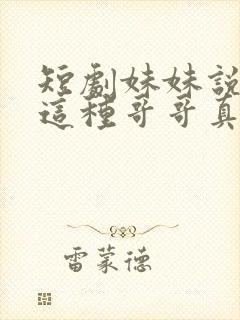 短劇妹妹說
這種哥哥真
雷蒙德